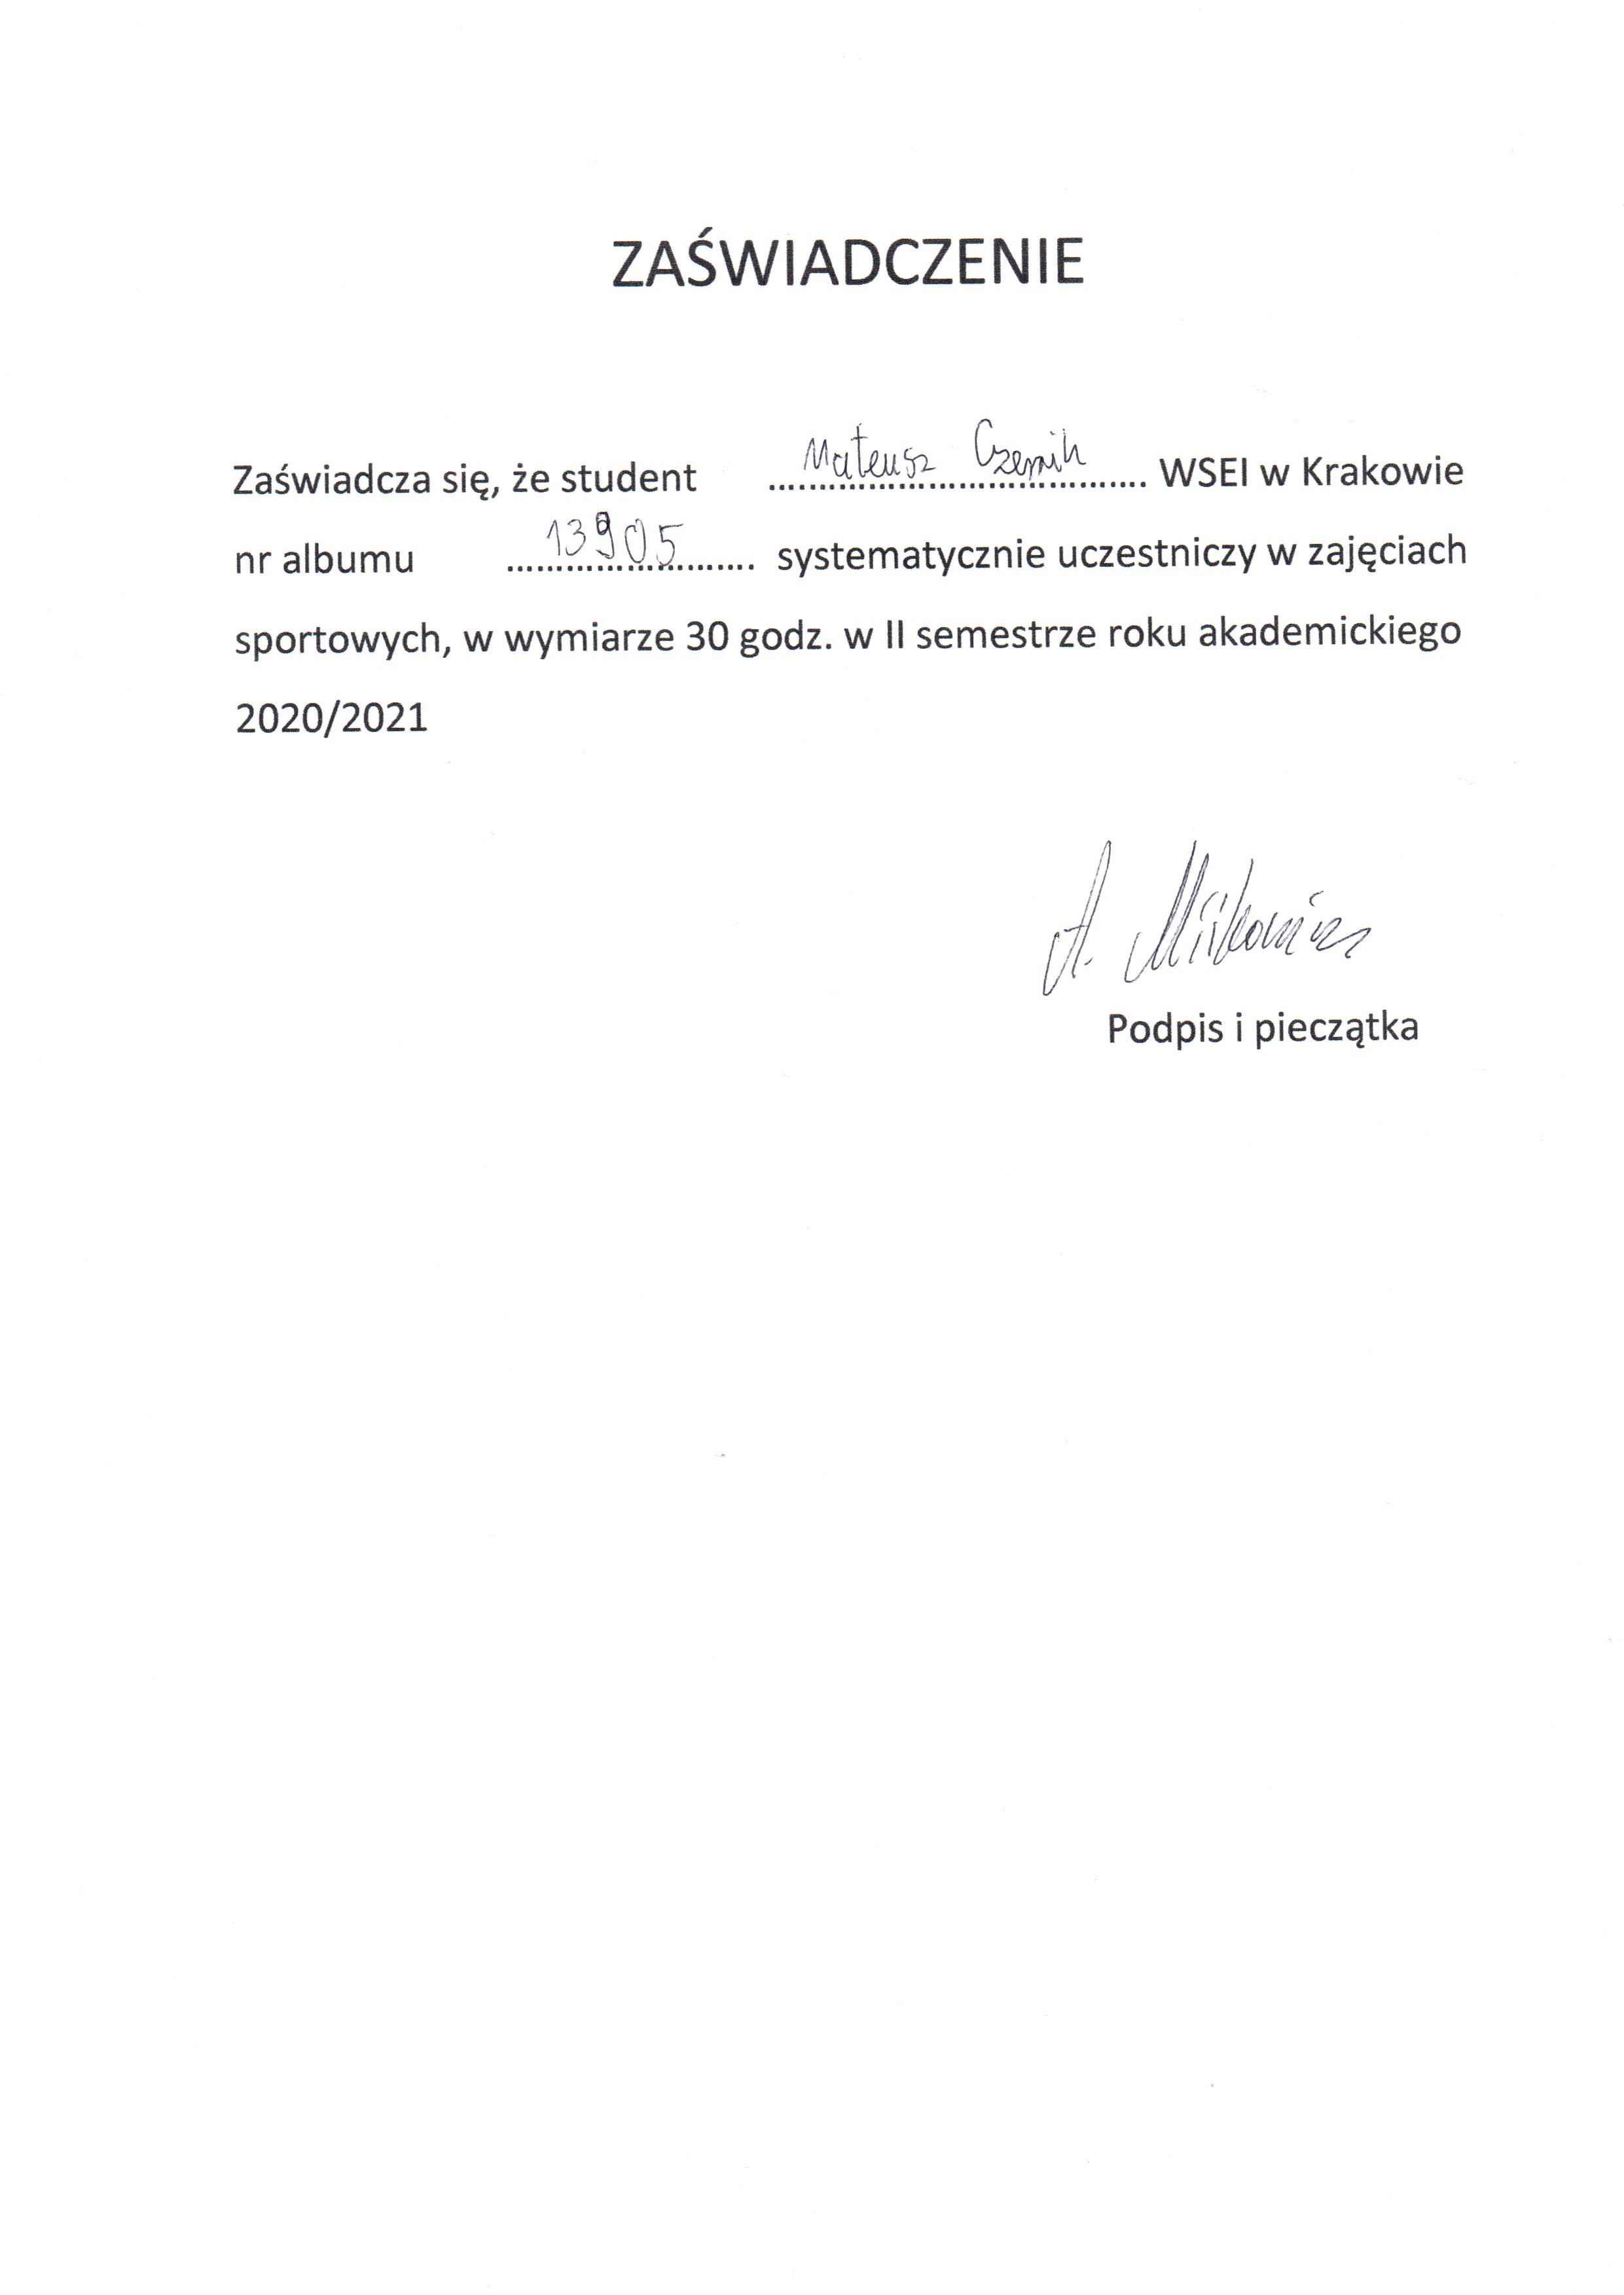 ZAŚWIADCZENIE
Zaświadcza się, że student Mateusz Czernik WSEI w Krakowie
nr albumu 13905 systematycznie uczestniczy w zajęciach
sportowych, w wymiarze 30 godz. w II semestrze roku akademickiego
2020/2021
A.
Podpis i pieczątka